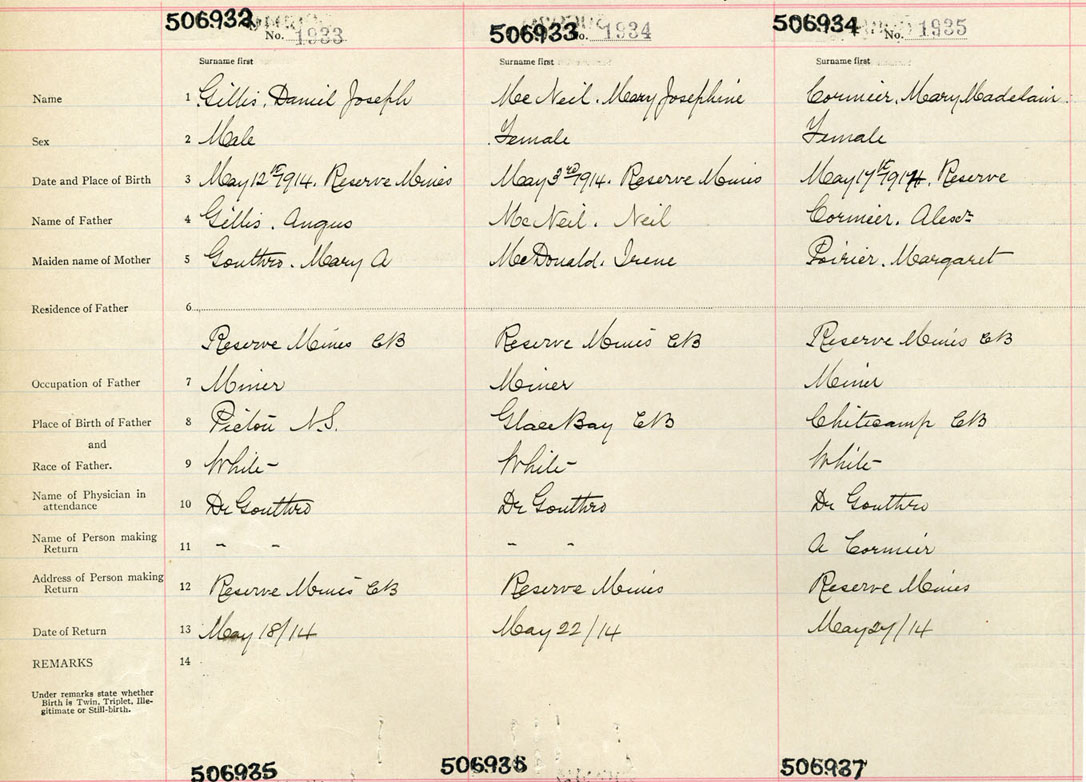 506932 No. 1933 506933 No. 1934 506934 No. 1935
Surname first Surname first Surname first
Name 1 Gillis, Daniel Joseph McNeil. Mary Josephine Cormier, Mary Madelain
Sex 2 Male Female Female
Date and Place of Birth 3 May 12th 1914. Reserve Mines May 3rd 1914. Reserve Mines May 17th 1914. Reserve
Name of Father 4 Gillis. Angus McNeil. Neil Cormier. Alexr
Maiden name of Mother 5 Gouthro. Mary A McDonald. Irene Poirier. Margaret
Residence of Father 6
Reserve Mines CB Reserve Mines CB Reserve Mines CB
Occupation of Father 7 Miner Miner Miner
Place of Birth of Father 8 Pictou N.S. Glace Bay CB Chiticamp CB
and
Race of Father. 9 White White White
Name of Physician in
attendance 10 Dr Gouthro Dr Gouthro Dr Gouthro
Name of Person making
Return 11 - - - - A Cormier
Address of Person making
Return 12 Reserve Mines CB Reserve Mines Reserve Mines
Date of Return 13 May 18/14 May 22/14 May 27/14
REMARKS 14
Under remarks state whether
Birth is Twin, Triplet, Ille-
gitimate or Still-birth.
506935 506936 506937